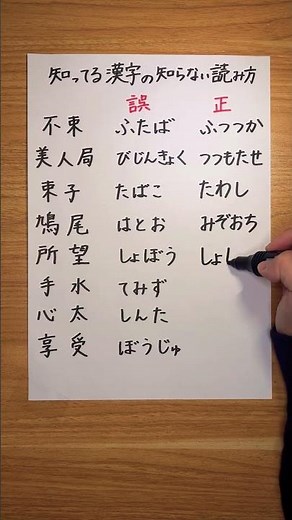 知ってる漢字の知らない読み方
誤 正
不束 ふたば ふつつか
美人局 びじんきょく つつもたせ
束子 たばこ たわし
鳩尾 はとお みぞおち
所望 しょぼう しょし
手水 てみず
心太 しんた
享受 ぼうじゅ